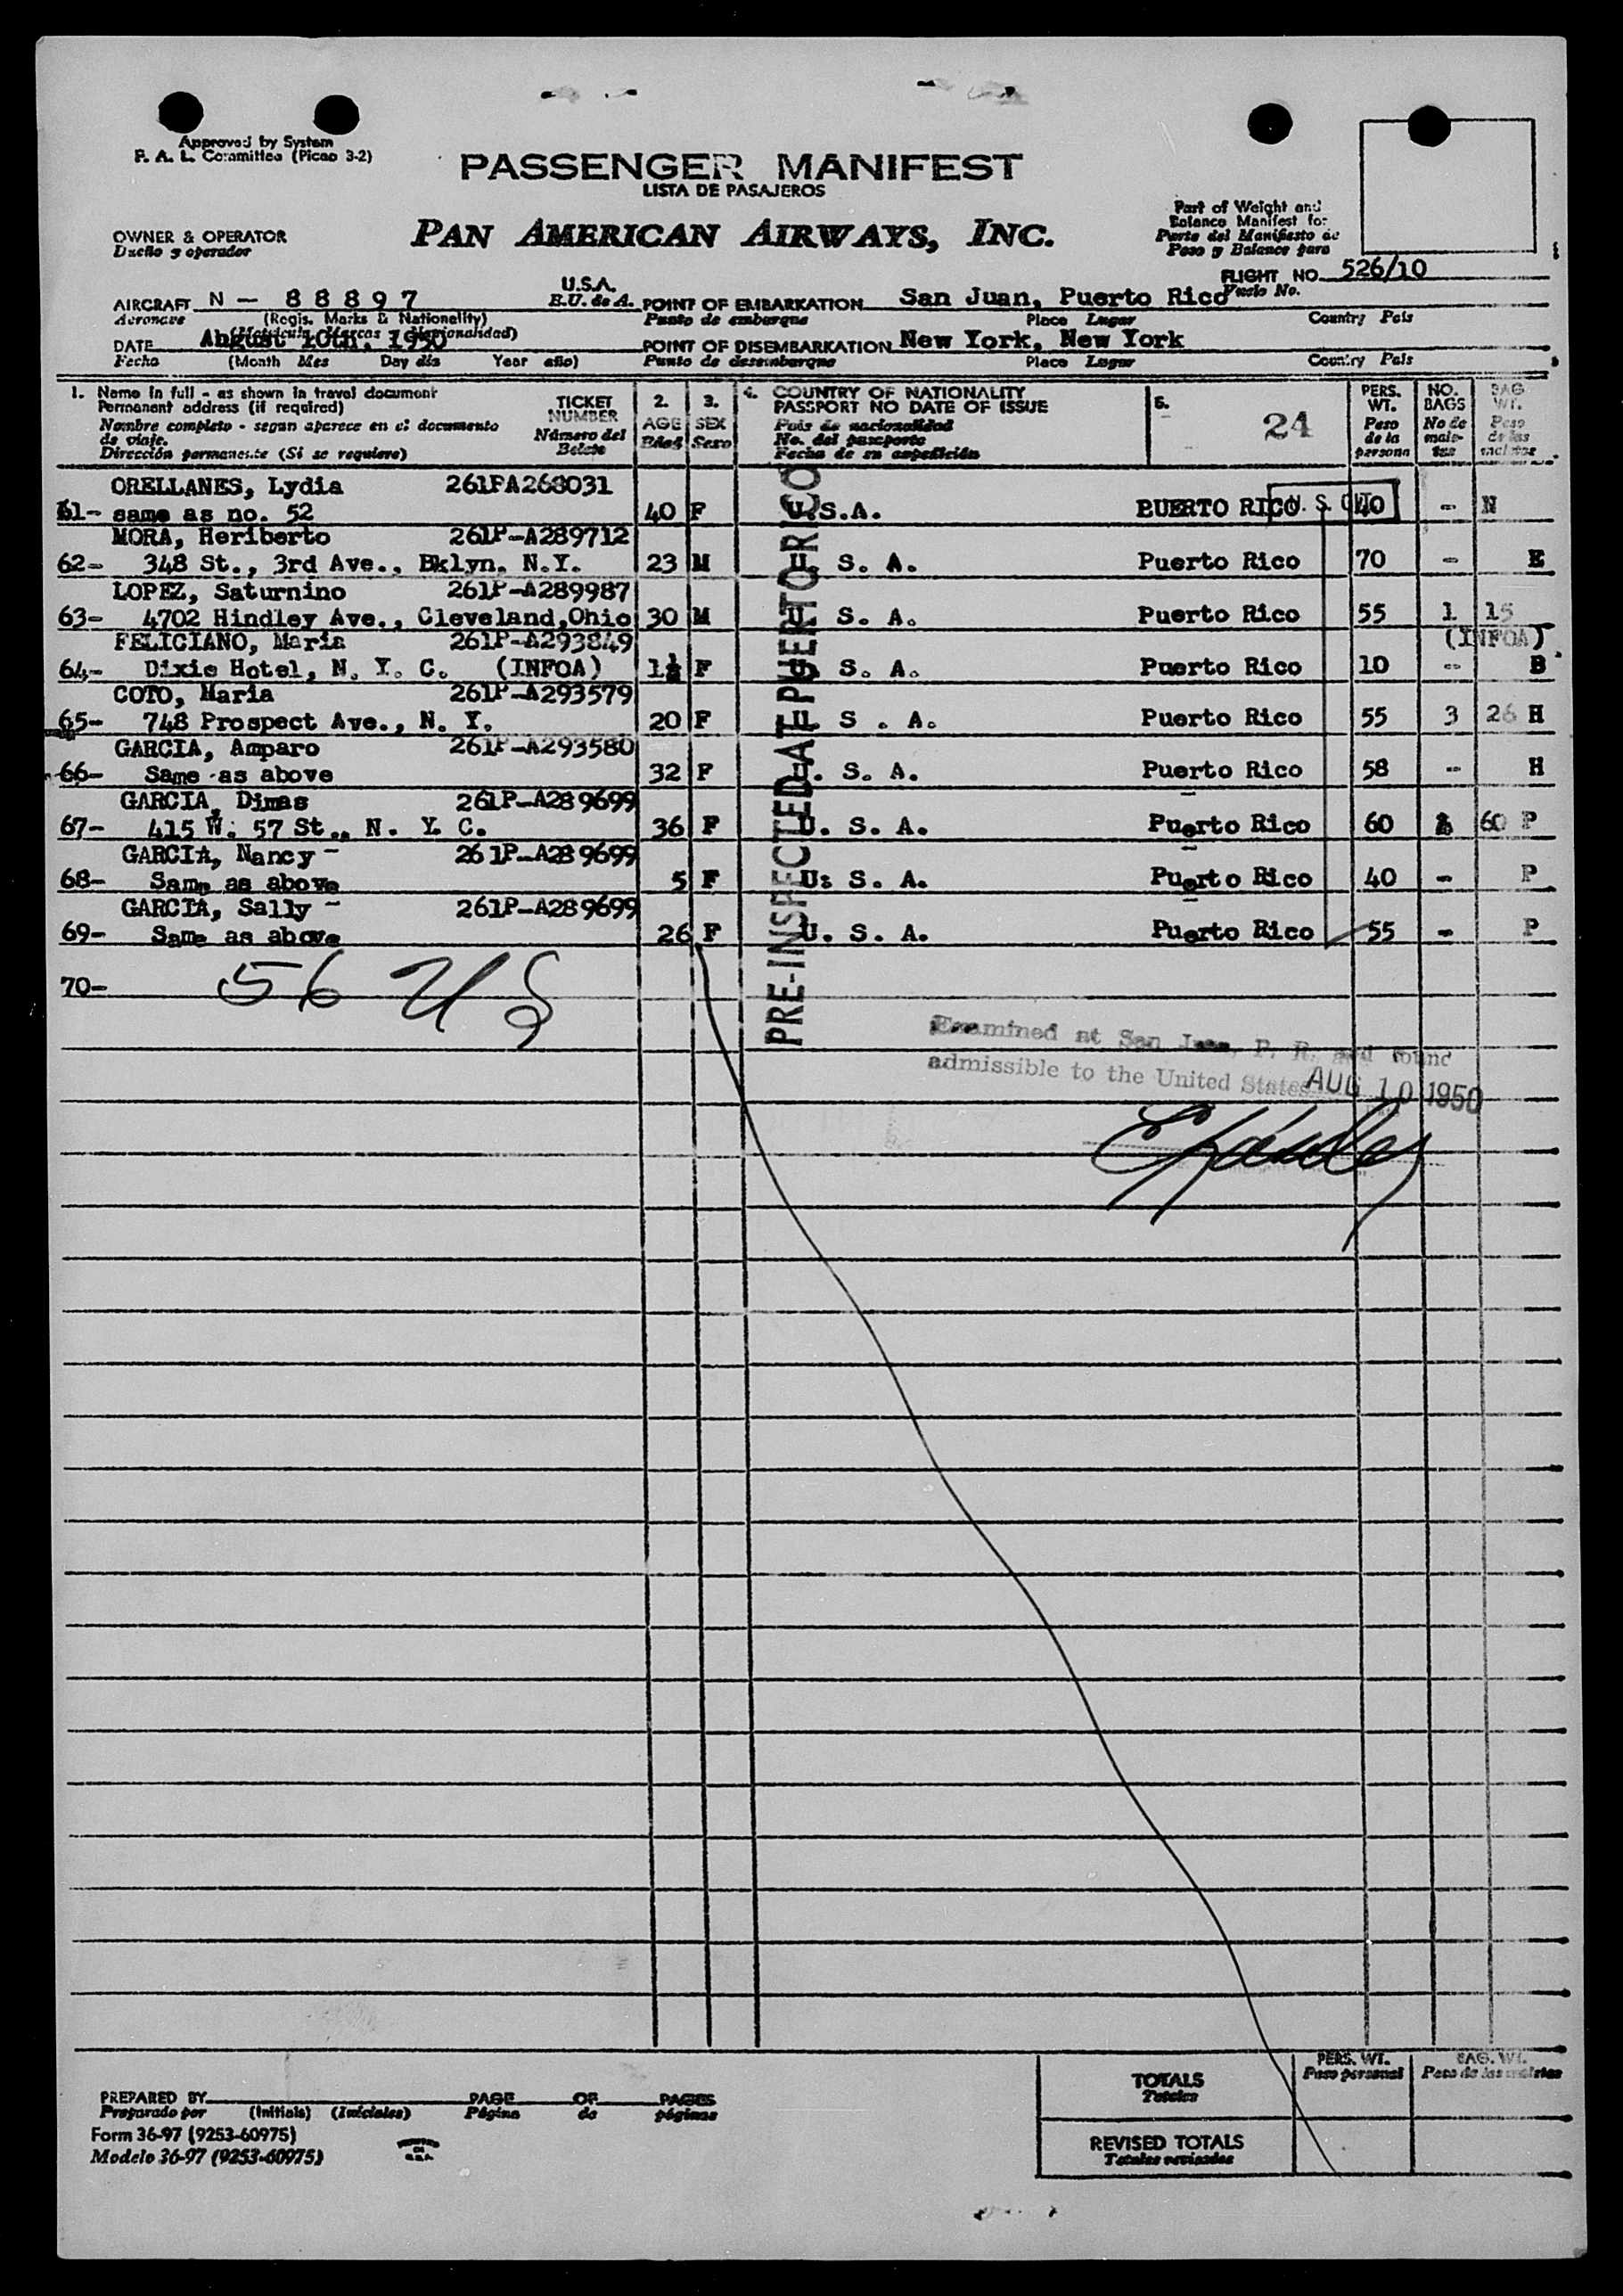 Approved by System
P. A. L. Committee (Picao 3-2)
PASSENGER MANIFEST
LISTA DE PASAJEROS
PAN AMERICAN AIRWAYS, INC.
OWNER & OPERATOR
Dueño y operador
Part of Weight and
Balance Manifest for
Parte del Manifiesto de
Peso y Balance para
FLIGHT NO. 526/10
Vuelo No.
AIRCRAFT N - 88897 U.S.A.
Aeronave (Regis. Marks & Nationality) E.U. de A.
(Matricula, Marcas Nacionalidad)
POINT OF EMBARKATION San Juan, Puerto Rico
Punto de embarque Place Lugar Country Pais
DATE August 10th, 1950
Fecha (Month Mes Day dia Year año)
POINT OF DISEMBARKATION New York, New York
Punto de desembarque Place Lugar Country Pais
1. Name in full - as shown in travel document
Permanent address (if required)
Nombre completo - segun aparece en el documento
de viaje.
Dirección permanente (Si se requiere)
TICKET
NUMBER
Número del
Boleto
2.
AGE
Edad
3.
SEX
Sexo
4. COUNTRY OF NATIONALITY
PASSPORT NO DATE OF ISSUE
Pais de nacionalidad
No. del pasaporte
Fecha de su expedición
5.
24
PERS.
WT.
Peso
de la
persona
NO.
BAGS
No de
male-
tas
BAG
WT.
Peso
de las
maletas
PRE-INSPECTED AT PUERTO RICO
ORELLANES, Lydia 261PA268031
61- same as no. 52 40 F U.S.A. PUERTO RICO 40 - N
MORA, Heriberto 261P-A289712
62- 348 St., 3rd Ave., Bklyn. N.Y. 23 M U. S. A. Puerto Rico 70 - E
LOPEZ, Saturnino 261P-A289987
63- 4702 Hindley Ave., Cleveland,Ohio 30 M U. S. A. Puerto Rico 55 1 15
FELICIANO, Maria 261P-A293849 (INFOA)
64- Dixie Hotel, N. Y. C. (INFOA) 1½ F U. S. A. Puerto Rico 10 - B
COTO, Maria 261P-A293579
65- 748 Prospect Ave., N. Y. 20 F U S . A. Puerto Rico 55 3 26 H
GARCIA, Amparo 261P-A293580
66- Same as above 32 F U. S. A. Puerto Rico 58 - H
GARCIA, Dimas 261P-A289699
67- 415 W. 57 St., N. Y. C. 36 F U. S. A. Puerto Rico 60 60 P
GARCIA, Nancy - 261P-A289699
68- Same as above 5 F U: S. A. Puerto Rico 40 - P
GARCIA, Sally - 261P-A289699
69- Same as above 26 F U. S. A. Puerto Rico 55 - P
70- 56 US
Examined at San Juan, P. R. and found
admissible to the United States AUG 10 1950
TOTALS
Totales
PERS. WT.
Peso personal
BAG. WT.
Peso de las maletas
REVISED TOTALS
Totales revisados
PREPARED BY PAGE OF PAGES
Preparado por (Initials) (Iniciales) Página de páginas
Form 36-97 (9253-60975)
Modelo 36-97 (9253-60975)